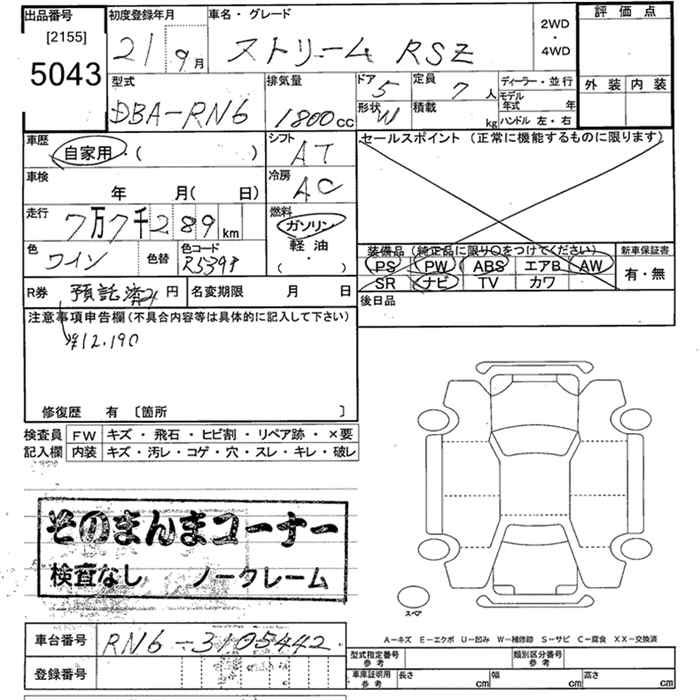 出品番号 初度登録年月 車名・グレード 2WD ・ 4WD 評価点
[2155]
5043
21 9月 ストリーム RSZ
外装 内装
型式 DBA-RN6
排気量 1800cc
ドア 5 定員 7人 ディーラー・並行
形状 W 積載 kg モデル年式 年
ハンドル 左・右
車歴 自家用・( )
シフト AT
セールスポイント (正常に機能するものに限ります)
車検 年 月( 日)
冷房 AC
走行 7万7千289km
燃料 ガソリン 軽油 ( ・ )
色 ワイン 色替 色コード
装備品 (純正品に限り○をつけてください) 新車保証書
PS PW ABS エアB AW 有・無
SR ナビ TV カワ
R券 預託済み 円 名変期限 月 日
後日品
注意事項申告欄(不具合内容等は具体的に記入して下さい)
¥12,190
修復歴 有 〔箇所 〕
検査員 FW キズ・飛石・ヒビ割・リペア跡・×要
記入欄 内装 キズ・汚レ・コゲ・穴・スレ・キレ・破レ
そのまんまコーナー
検査なし ノークレーム
スペア
A-キズ E-エクボ U-凹み W-補修跡 S-サビ C-腐食 XX-交換済
車台番号 RN6-3105442
型式指定番号 参考 類別区分番号 参考
登録番号
車庫証明用 参考 長さ cm 幅 cm 高さ cm